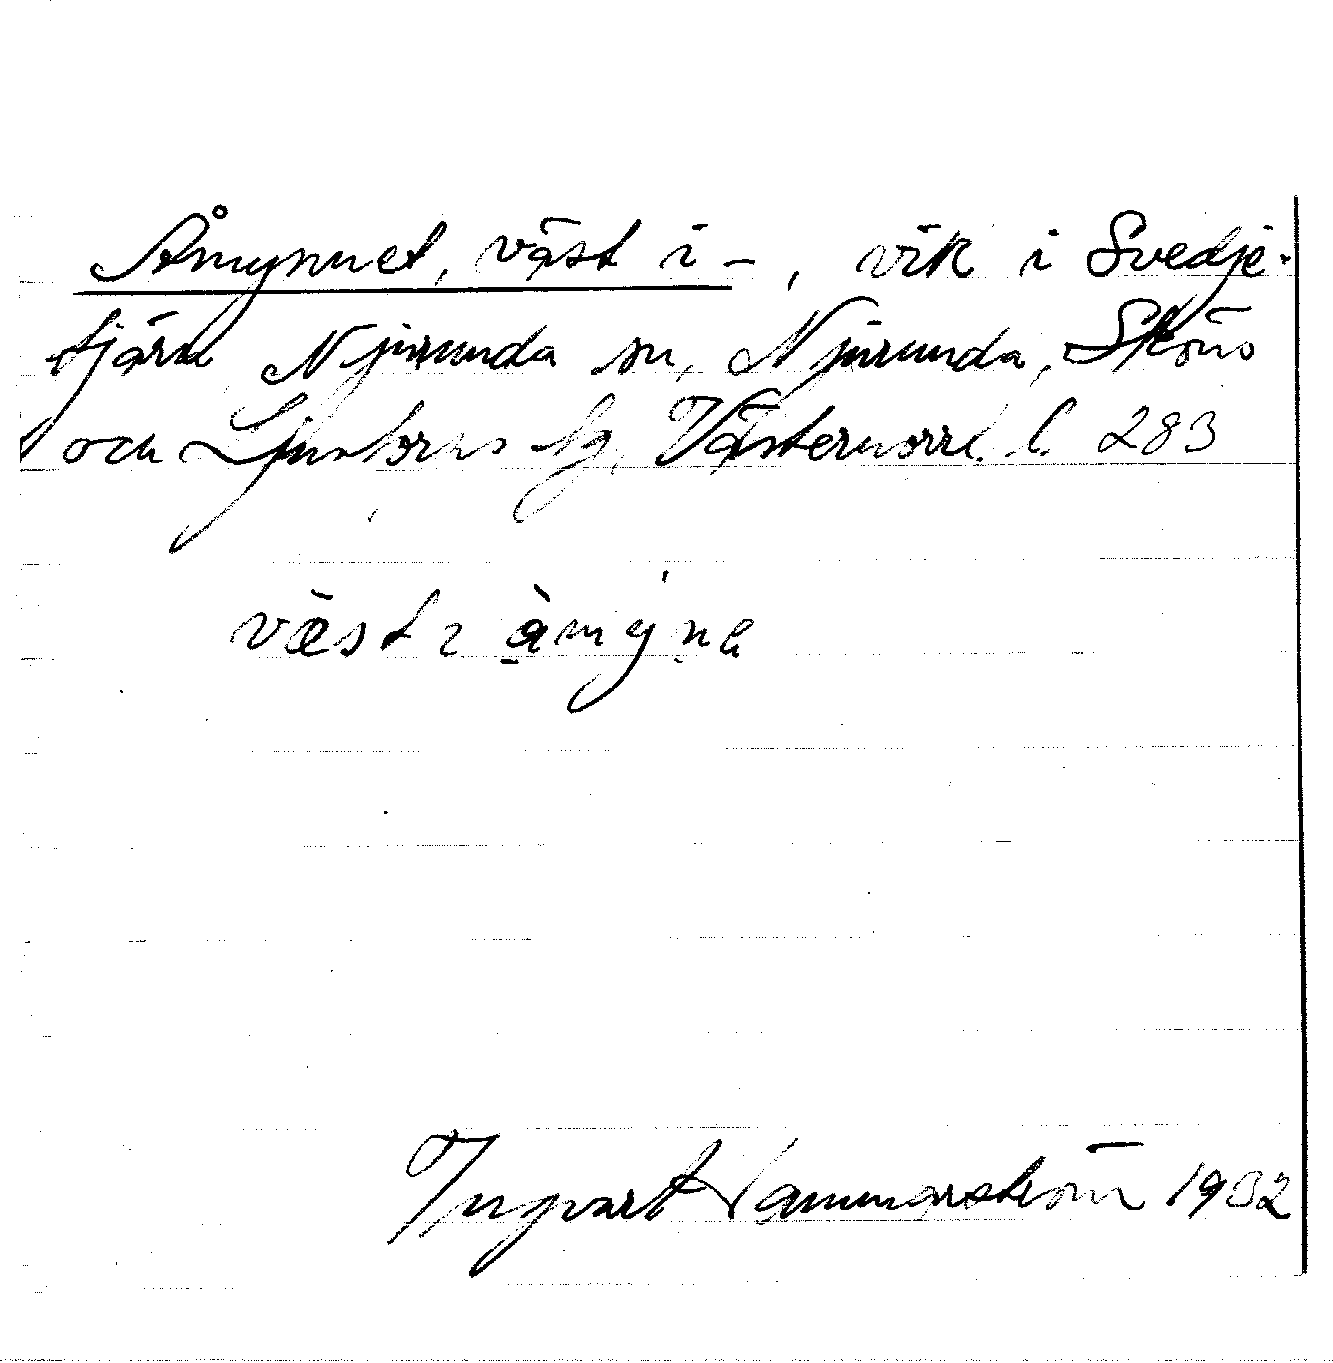 Åmynnet, väst i –, vik i Svedje-
tjärn Njurunda sn, Njurunda, Sköns
och Ljustorps tg, Västernorrl. l. 283
väst i åmyne
Ingvart Hammarström 1932